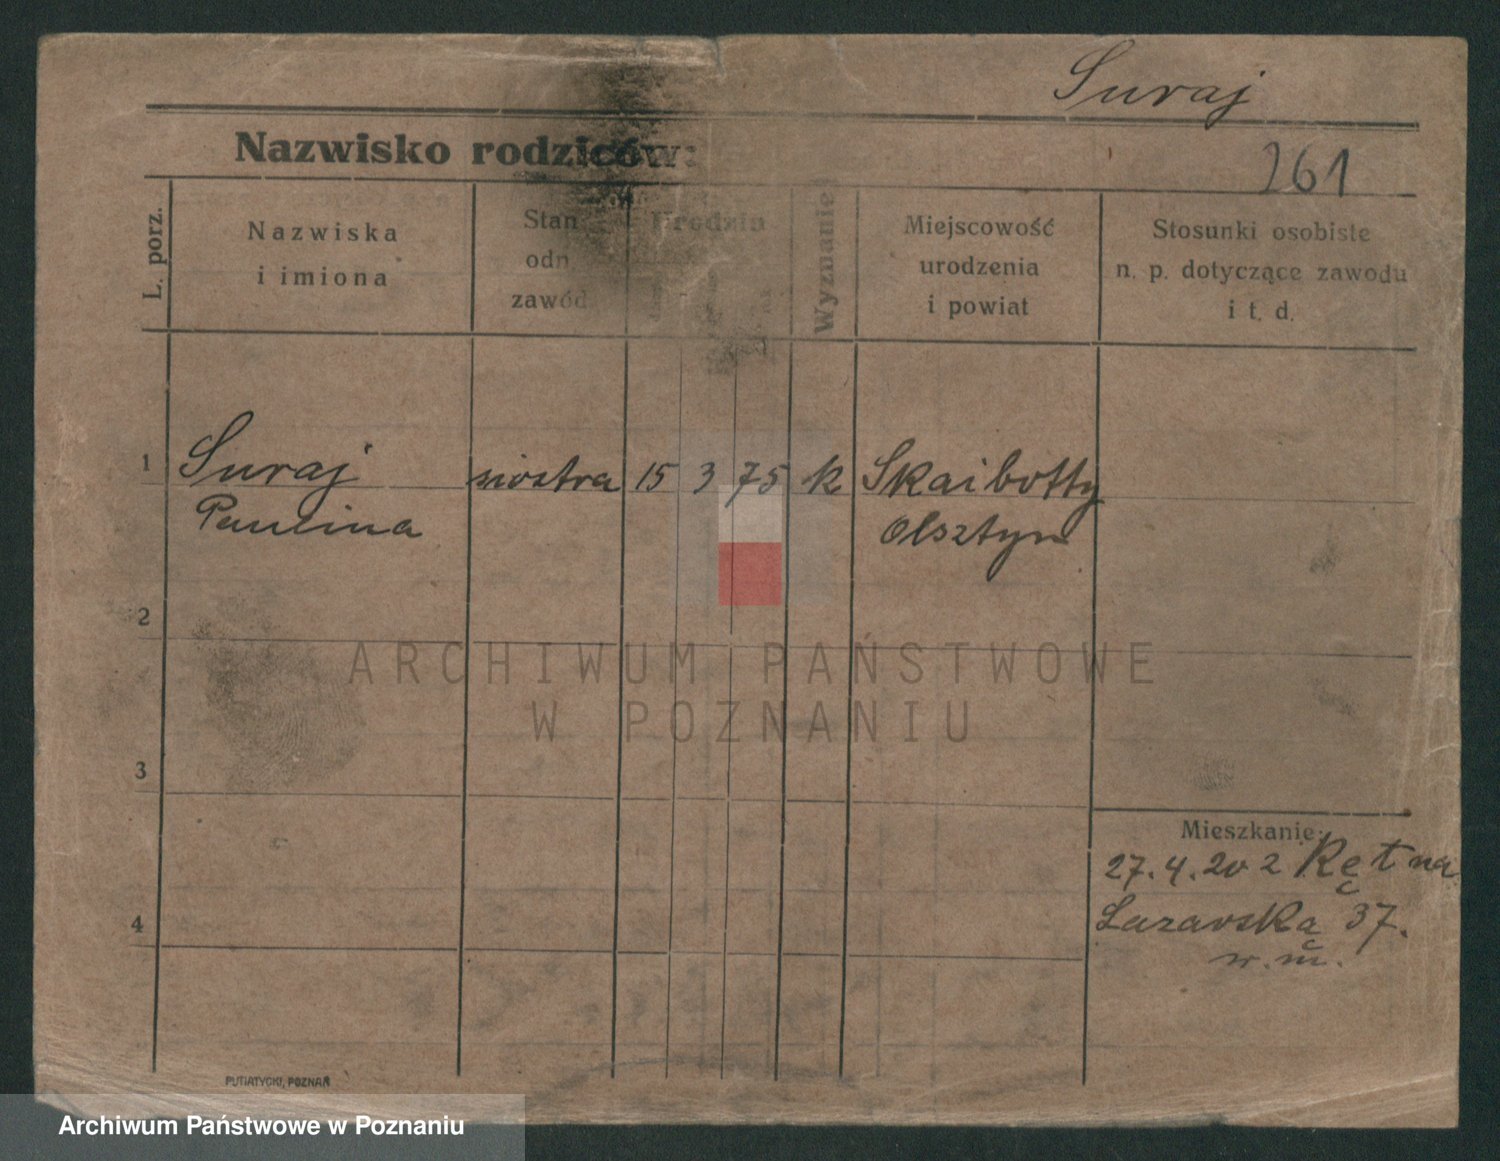 Suraj
Nazwisko rodziców:
261
L. porz.
Nazwiska
i imiona
Stan
odn.
zawód
Urodzin
Wyznanie
Miejscowość
urodzenia
i powiat
Stosunki osobiste
n. p. dotyczące zawodu
i t. d.
1 Suraj siostra 15 3 75 k Skaibotty
Paulina Olsztyn
2
3
4
ARCHIWUM PAŃSTWOWE
W POZNANIU
Mieszkanie:
27.4.20 z Ręt na
Łazarską 37.
w.m.
PUTIATYCKI, POZNAŃ
Archiwum Państwowe w Poznaniu